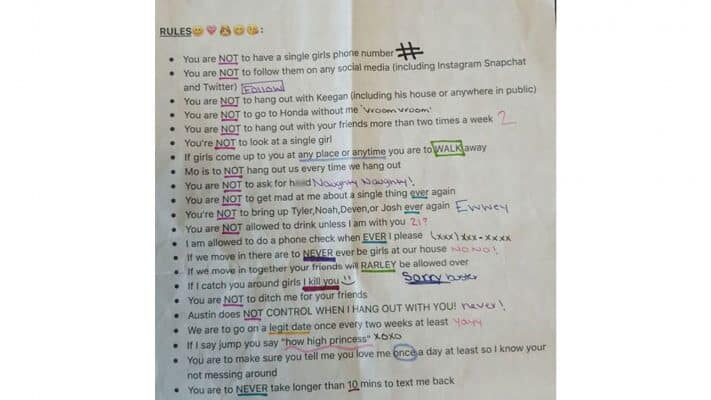 RULES😀💗👸😊😘:
• You are NOT to have a single girls phone number #
• You are NOT to follow them on any social media (including Instagram Snapchat
and Twitter) Follow
• You are NOT to hang out with Keegan (including his house or anywhere in public)
• You are NOT to go to Honda without me 'vroom vroom'
• You are NOT to hang out with your friends more than two times a week 2
• You're NOT to look at a single girl
• If girls come up to you at any place or anytime you are to WALK away
• Mo is to NOT hang out us every time we hang out
• You are NOT to ask for h Naughty Naughty!
• You are NOT to get mad at me about a single thing ever again
• You're NOT to bring up Tyler,Noah,Deven,or Josh ever again Ewwey
• You are NOT allowed to drink unless I am with you 21?
• I am allowed to do a phone check when EVER I please (xxx)xxx-xxxx
• If we move in there are to NEVER ever be girls at our house NONO!
• If we move in together your friends will RARLEY be allowed over
• If I catch you around girls I kill you :) Sorry
• You are NOT to ditch me for your friends
• Austin does NOT CONTROL WHEN I HANG OUT WITH YOU! never!
• We are to go on a legit date once every two weeks at least yayy
• If I say jump you say "how high princess" xoxo
• You are to make sure you tell me you love me once a day at least so I know your
not messing around
• You are to NEVER take longer than 10 mins to text me back